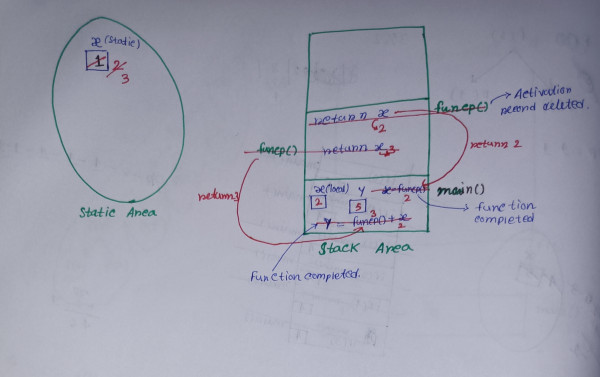 x (static)
1 2
3
Static Area
return x
2
funcp()
Activation
record deleted.
funcp()
return x 3
return 2
return 3
x(local) y x=funcp()
2 5 2
main()
function
completed
3
y = funcp() + x
2
Stack Area
Function completed.